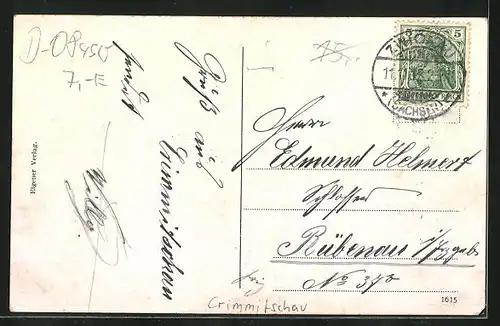 D-08450
7,-E
15,-
Gruß aus
Crimmitschau
sendet
Willy
Eigener Verlag.
5
(SACHSEN)
Herrn
Edmund Helmert
Schlosser
Rübenau i/Erzgeb.
No 37b
Crimmitschau
1615